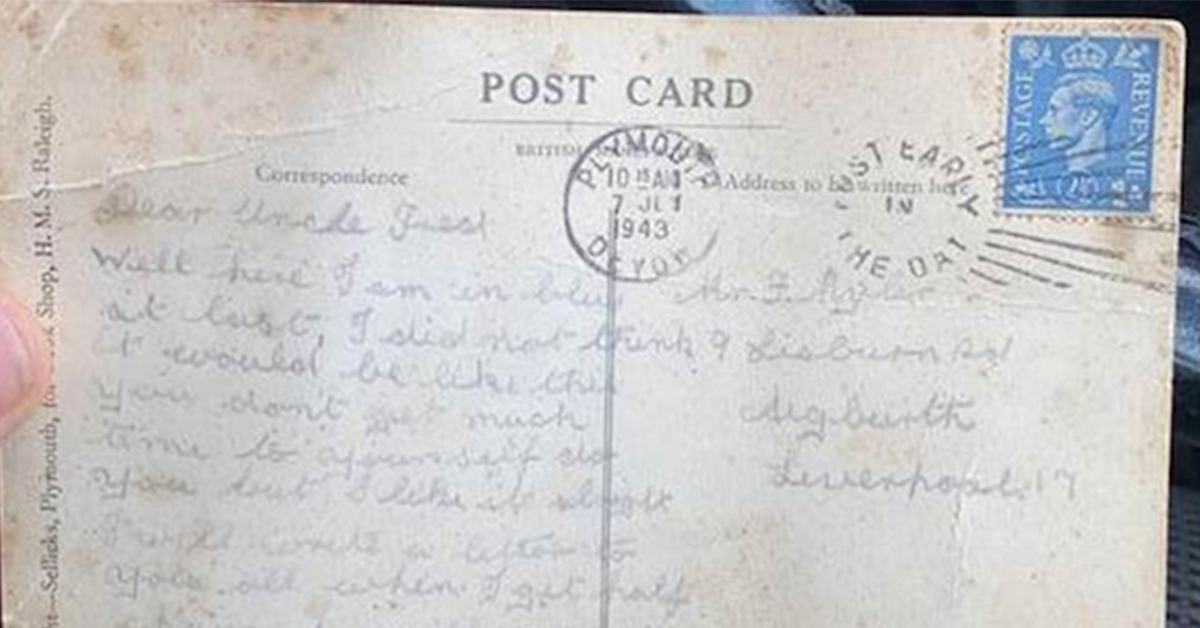 POST CARD
BRITISH
Correspondence
Address to be written here
PLYMOUTH
10 15 AM
7 JLY
1943
DEVON
POST EARLY
IN
THE DAY
POSTAGE
REVENUE
Dear Uncle Fred
Well here I am in blue
at last, I did not think
it would be like this
you don't get much
time to yourself do
you but I like it alright
I will write a letter to
you all when I get half
Mr. F.
9 Lisburn Rd
Aigburth
Liverpool. 17
Sellicks, Plymouth, for Shop, H. M. S. Raleigh.